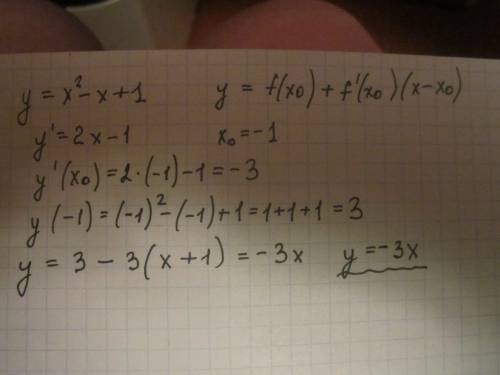 y = x² - x + 1 y = f(x₀) + f'(x₀)(x - x₀)
y' = 2x - 1 x₀ = -1
y'(x₀) = 2·(-1) - 1 = -3
y(-1) = (-1)² - (-1) + 1 = 1 + 1 + 1 = 3
y = 3 - 3(x + 1) = -3x y = -3x